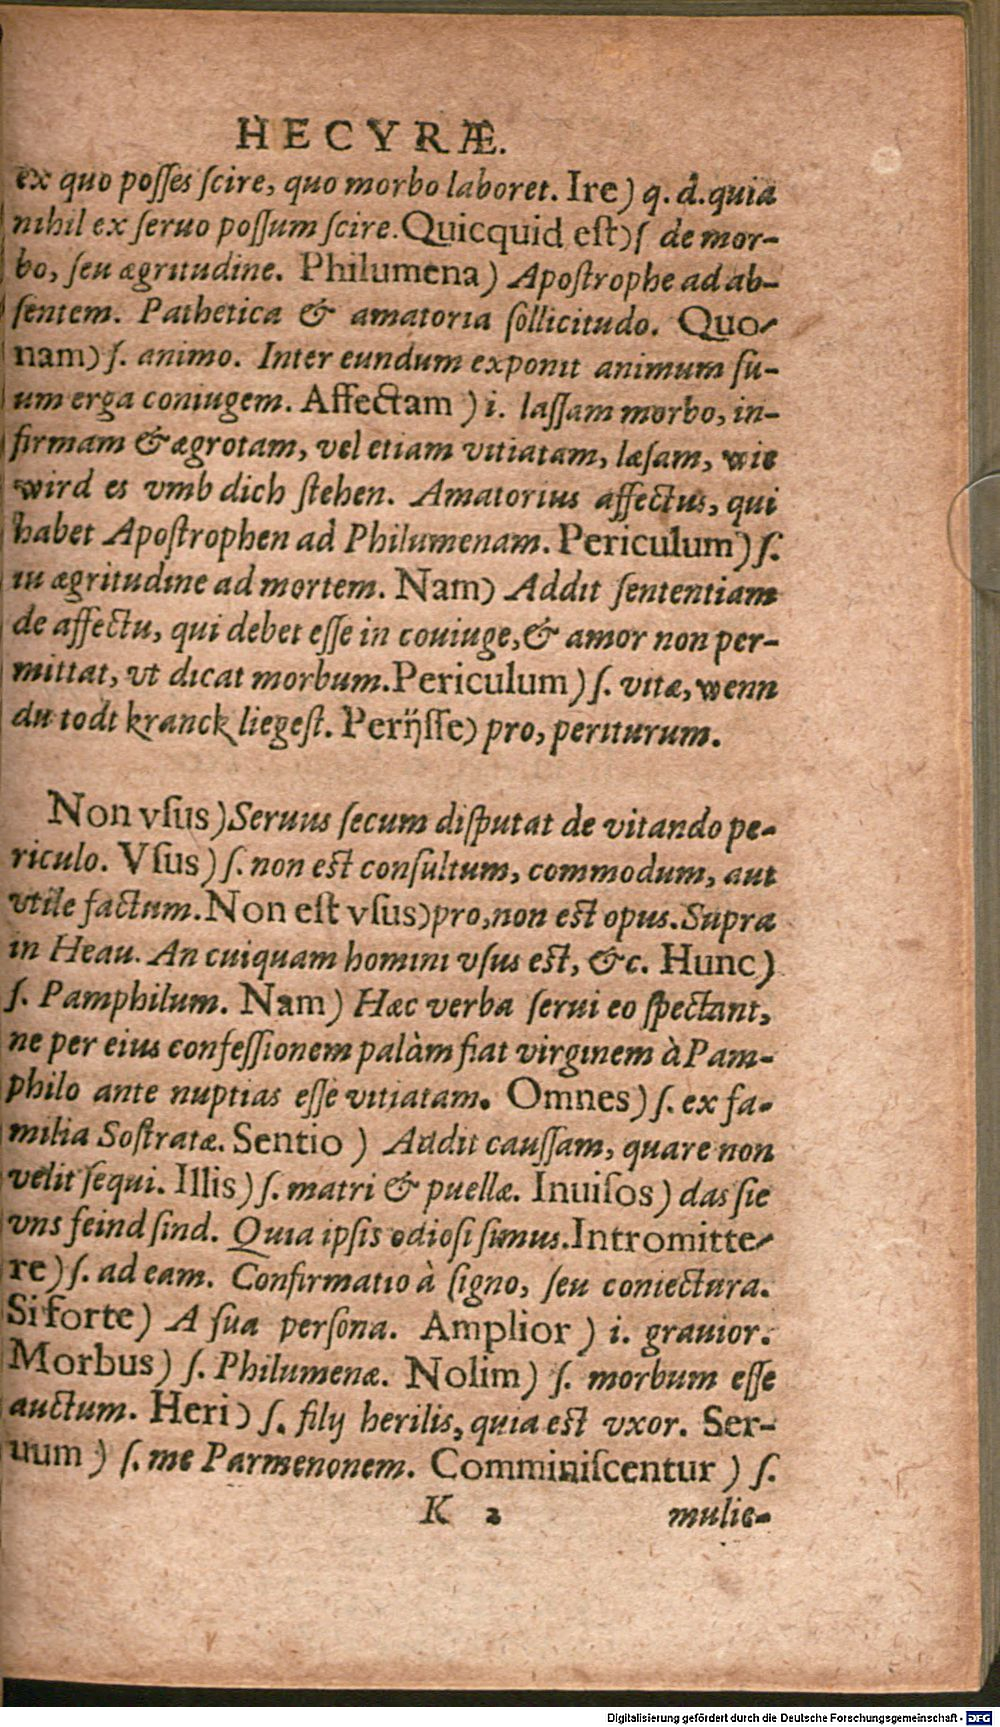 HECYRÆ.
ex quo poſſes ſcire, quo morbo laboret. Ire) q. d. quia
nihil ex ſeruo poſſum ſcire. Quicquid eſt)ſ de mor-
bo, ſeu ægritudine. Philumena) Apoſtrophe ad ab-
ſentem. Pathetica & amatoria ſollicitudo. Quo-
nam) ſ. animo. Inter eundum exponit animum ſu-
um erga coniugem. Affectam ) i. laſſam morbo, in-
firmam & ægrotam, vel etiam vitiatam, læſam, wie
wird es vmb dich ſtehen. Amatorius affectus, qui
habet Apoſtrophen ad Philumenam. Periculum) ſ.
in ægritudine ad mortem. Nam) Addit ſententiam
de affectu, qui debet eſſe in couiuge, & amor non per-
mittat, vt dicat morbum. Periculum) ſ. vitæ, wenn
du todt kranck liegeſt. Perijſſe) pro, periturum.
Non vſus) Seruus ſecum diſputat de vitando pe-
riculo. Vſus) ſ. non eſt conſultum, commodum, aut
vtile factum. Non eſt vſus)pro, non eſt opus. Supra
in Heau. An cuiquam homini vſus eſt, &c. Hunc)
ſ. Pamphilum. Nam) Hæc verba ſerui eo ſpectant,
ne per eius confeſſionem palàm fiat virginem à Pam-
philo ante nuptias eſſe vitiatam. Omnes) ſ. ex fa-
milia Soſtratæ. Sentio ) Addit cauſſam, quare non
velit ſequi. Illis) ſ. matri & puellæ. Inuiſos) das ſie
vns feind ſind. Quia ipſis odioſi ſimus. Intromitte-
re) ſ. ad eam. Confirmatio à ſigno, ſeu coniectura.
Si forte) A ſua perſona. Amplior ) i. grauior.
Morbus) ſ. Philumenæ. Nolim) ſ. morbum eſſe
auctum. Heri) ſ. filij herilis, quia eſt vxor. Ser-
uum ) ſ. me Parmenonem. Comminiſcentur ) ſ.
K 2 mulie-
Digitalisierung gefördert durch die Deutsche Forschungsgemeinschaft - DFG